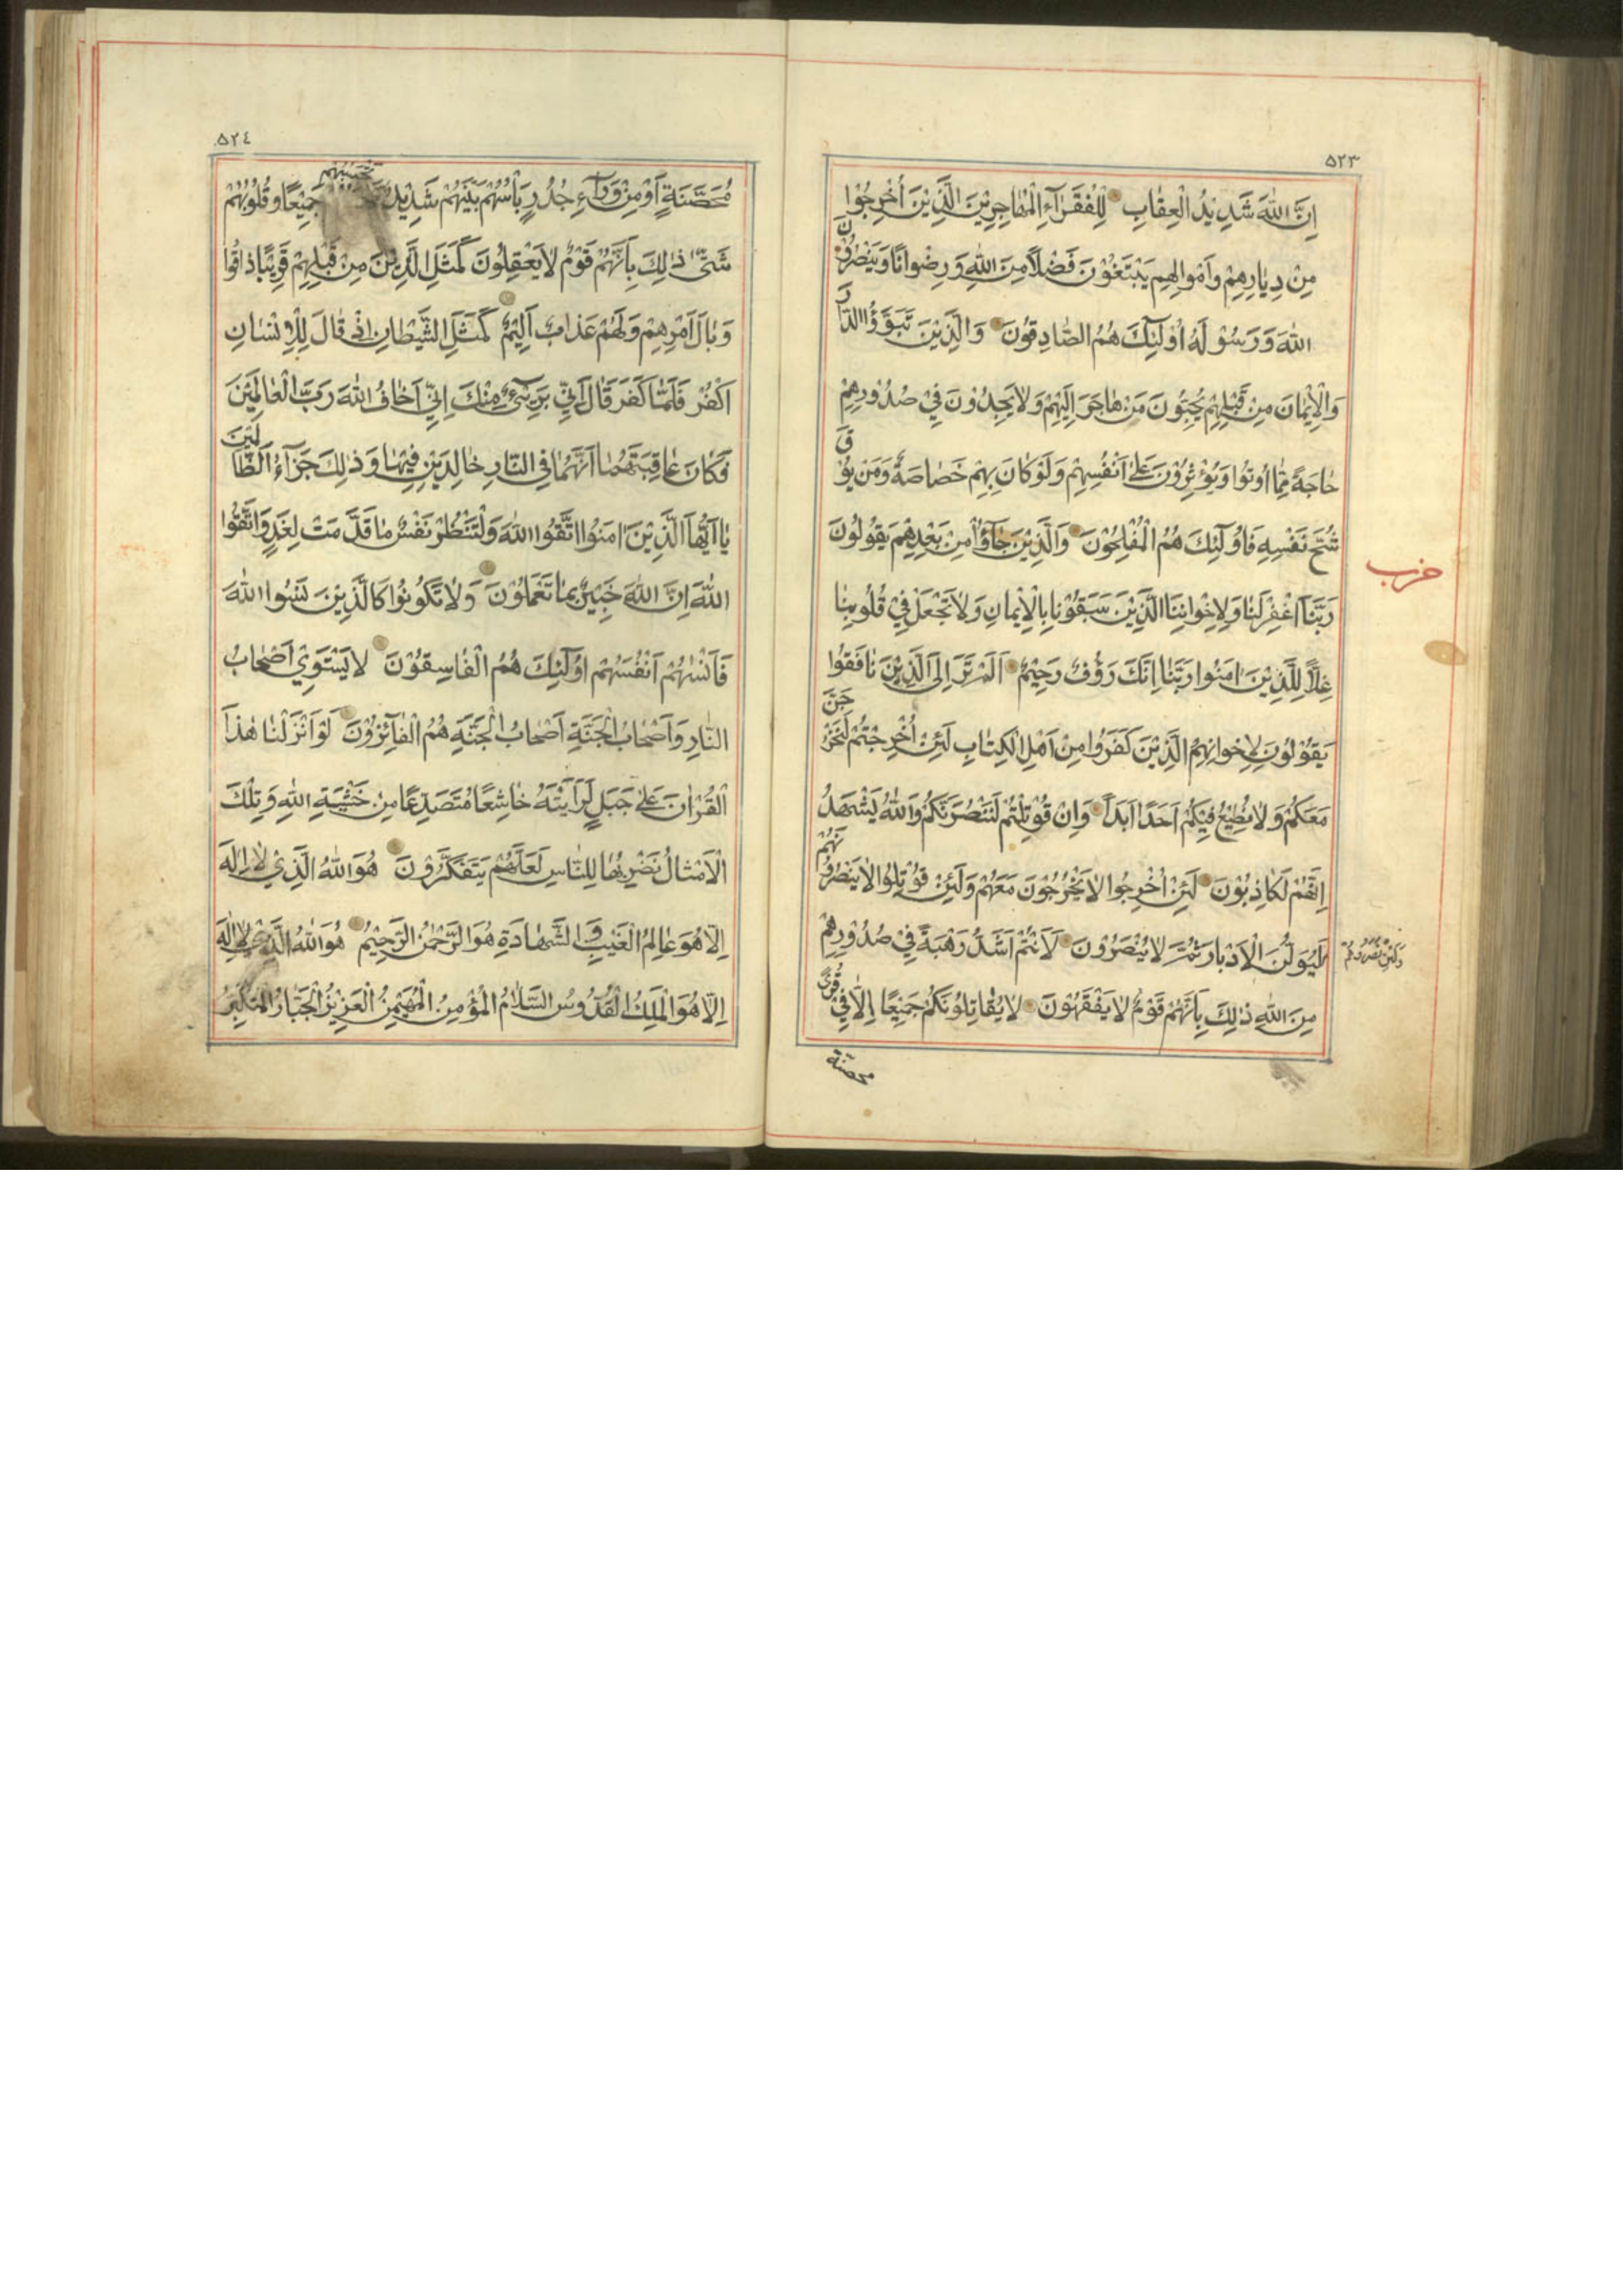 ٥٢٣
اِنَّ اللّٰهَ شَدِيْدُ الْعِقٰابِ لِلْفُقَرٰآءِ الْمُهٰاجِرِيْنَ الَّذِيْنَ اُخْرِجُوا
مِنْ دِيٰارِهِمْ وَاَمْوالِهِمْ يَبْتَغُوْنَ فَضْلًا مِنَ اللّٰهِ وَرِضْوانًا وَيَنْصُرُوْنَ
اللّٰهَ وَرَسُوْلَهُ اُوْلٰٓئِكَ هُمُ الصّٰادِقُونَ وَالَّذِيْنَ تَبَوَّؤُا الدّٰارَ
وَالْاِيْمٰانَ مِنْ قَبْلِهِمْ يُحِبُّونَ مَنْ هٰاجَرَ اِلَيْهِمْ وَلٰا يَجِدُوْنَ فِي صُدُوْرِهِمْ
حٰاجَةً مِمّٰا اُوتُوا وَيُؤْثِرُوْنَ عَلٰى اَنْفُسِهِمْ وَلَوْ كٰانَ بِهِمْ خَصٰاصَةٌ وَمَنْ يُوْقَ
شُحَّ نَفْسِهِ فَاُولٰٓئِكَ هُمُ الْمُفْلِحُوْنَ وَالَّذِيْنَ جٰآؤُا مِنْ بَعْدِهِمْ يَقُولُونَ
حزب
رَبَّنَا اغْفِرْ لَنٰا وَلِاِخْوانِنَا الَّذِيْنَ سَبَقُوْنٰا بِالْاِيْمٰانِ وَلٰا تَجْعَلْ فِيْ قُلُوبِنٰا
غِلًّا لِلَّذِيْنَ اٰمَنُوا رَبَّنٰا اِنَّكَ رَؤُفٌ رَحِيْمٌ اَلَمْ تَرَ اِلَى الَّذِيْنَ نٰافَقُوا
يَقُوْلُونَ لِاِخْوانِهِمُ الَّذِيْنَ كَفَرُوا مِنْ اَهْلِ الْكِتٰابِ لَئِنْ اُخْرِجْتُمْ لَنَخْرُجَنَّ
مَعَكُمْ وَلٰا نُطِيْعُ فِيْكُمْ اَحَدًا اَبَدًا وَاِنْ قُوْتِلْتُمْ لَنَنْصُرَنَّكُمْ وَاللّٰهُ يَشْهَدُ
اِنَّهُمْ لَكٰاذِبُوْنَ لَئِنْ اُخْرِجُوا لٰا يَخْرُجُوْنَ مَعَهُمْ وَلَئِنْ قُوْتِلُوا لٰا يَنْصُرُوْنَهُمْ
وَلَئِنْ نَصَرُوهُمْ
لَيُوَلُّنَ الْاَدْبٰارَ ثُمَّ لٰا يُنْصَرُوْنَ لَاَنْتُمْ اَشَدُّ رَهْبَةً فِي صُدُوْرِهِمْ
مِنَ اللّٰهِ ذٰلِكَ بِاَنَّهُمْ قَوْمٌ لٰا يَفْقَهُوْنَ لٰا يُقٰاتِلُوْنَكُمْ جَمِيْعًا اِلّٰا فِيْ قُرًى
محصنة
٥٢٤
مُحَصَّنَةٍ اَوْ مِنْ وَرٰآءِ جُدُرٍ بَاْسُهُمْ بَيْنَهُمْ شَدِيْدٌ تَحْسَبُهُمْ جَمِيْعًا وَقُلُوْبُهُمْ
شَتّٰى ذٰلِكَ بِاَنَّهُمْ قَوْمٌ لٰا يَعْقِلُوْنَ كَمَثَلِ الَّذِيْنَ مِنْ قَبْلِهِمْ قَرِيْبًا ذٰاقُوا
وَبٰالَ اَمْرِهِمْ وَلَهُمْ عَذٰابٌ اَلِيْمٌ كَمَثَلِ الشَّيْطٰانِ اِذْ قٰالَ لِلْاِنْسٰانِ
اكْفُرْ فَلَمّٰا كَفَرَ قٰالَ اِنِّي بَرِيْٓءٌ مِنْكَ اِنِّي اَخٰافُ اللّٰهَ رَبَّ الْعٰالَمِيْنَ
فَكٰانَ عٰاقِبَتَهُمٰا اَنَّهُمٰا فِي النّٰارِ خٰالِدَيْنِ فِيْهٰا وَذٰلِكَ جَزٰآءُ الظّٰالِمِيْنَ
يٰا اَيُّهَا الَّذِيْنَ اٰمَنُوا اتَّقُوا اللّٰهَ وَلْتَنْظُرْ نَفْسٌ مٰا قَدَّمَتْ لِغَدٍ وَاتَّقُوا
اللّٰهَ اِنَّ اللّٰهَ خَبِيْرٌ بِمٰا تَعْمَلُوْنَ وَلٰا تَكُونُوْا كَالَّذِيْنَ نَسُوا اللّٰهَ
فَاَنْسٰهُمْ اَنْفُسَهُمْ اُولٰٓئِكَ هُمُ الْفٰاسِقُوْنَ لٰا يَسْتَوِيْ اَصْحٰابُ
النّٰارِ وَاَصْحٰابُ الْجَنَّةِ اَصْحٰابُ الْجَنَّةِ هُمُ الْفٰآئِزُوْنَ لَوْ اَنْزَلْنٰا هٰذَا
الْقُرْاٰنَ عَلٰى جَبَلٍ لَرَاَيْتَهُ خٰاشِعًا مُتَصَدِّعًا مِنْ خَشْيَةِ اللّٰهِ وَتِلْكَ
الْاَمْثٰالُ نَضْرِبُهٰا لِلنّٰاسِ لَعَلَّهُمْ يَتَفَكَّرُوْنَ هُوَ اللّٰهُ الَّذِيْ لٰا اِلٰهَ
اِلّٰا هُوَ عٰالِمُ الْغَيْبِ وَالشَّهٰادَةِ هُوَ الرَّحْمٰنُ الرَّحِيْمُ هُوَ اللّٰهُ الَّذِيْ لٰا اِلٰهَ
اِلّٰا هُوَ الْمَلِكُ الْقُدُّوسُ السَّلٰامُ الْمُؤْمِنُ الْمُهَيْمِنُ الْعَزِيْزُ الْجَبّٰارُ الْمُتَكَبِّرُ